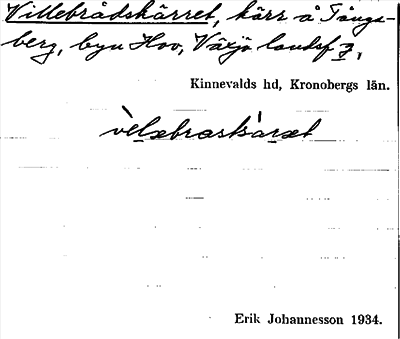 Villebrådskärret, kärr å Tångs-
berg, byn Hov, Växjö landsf 3,
Kinnevalds hd, Kronobergs län.
Erik Johannesson 1934.